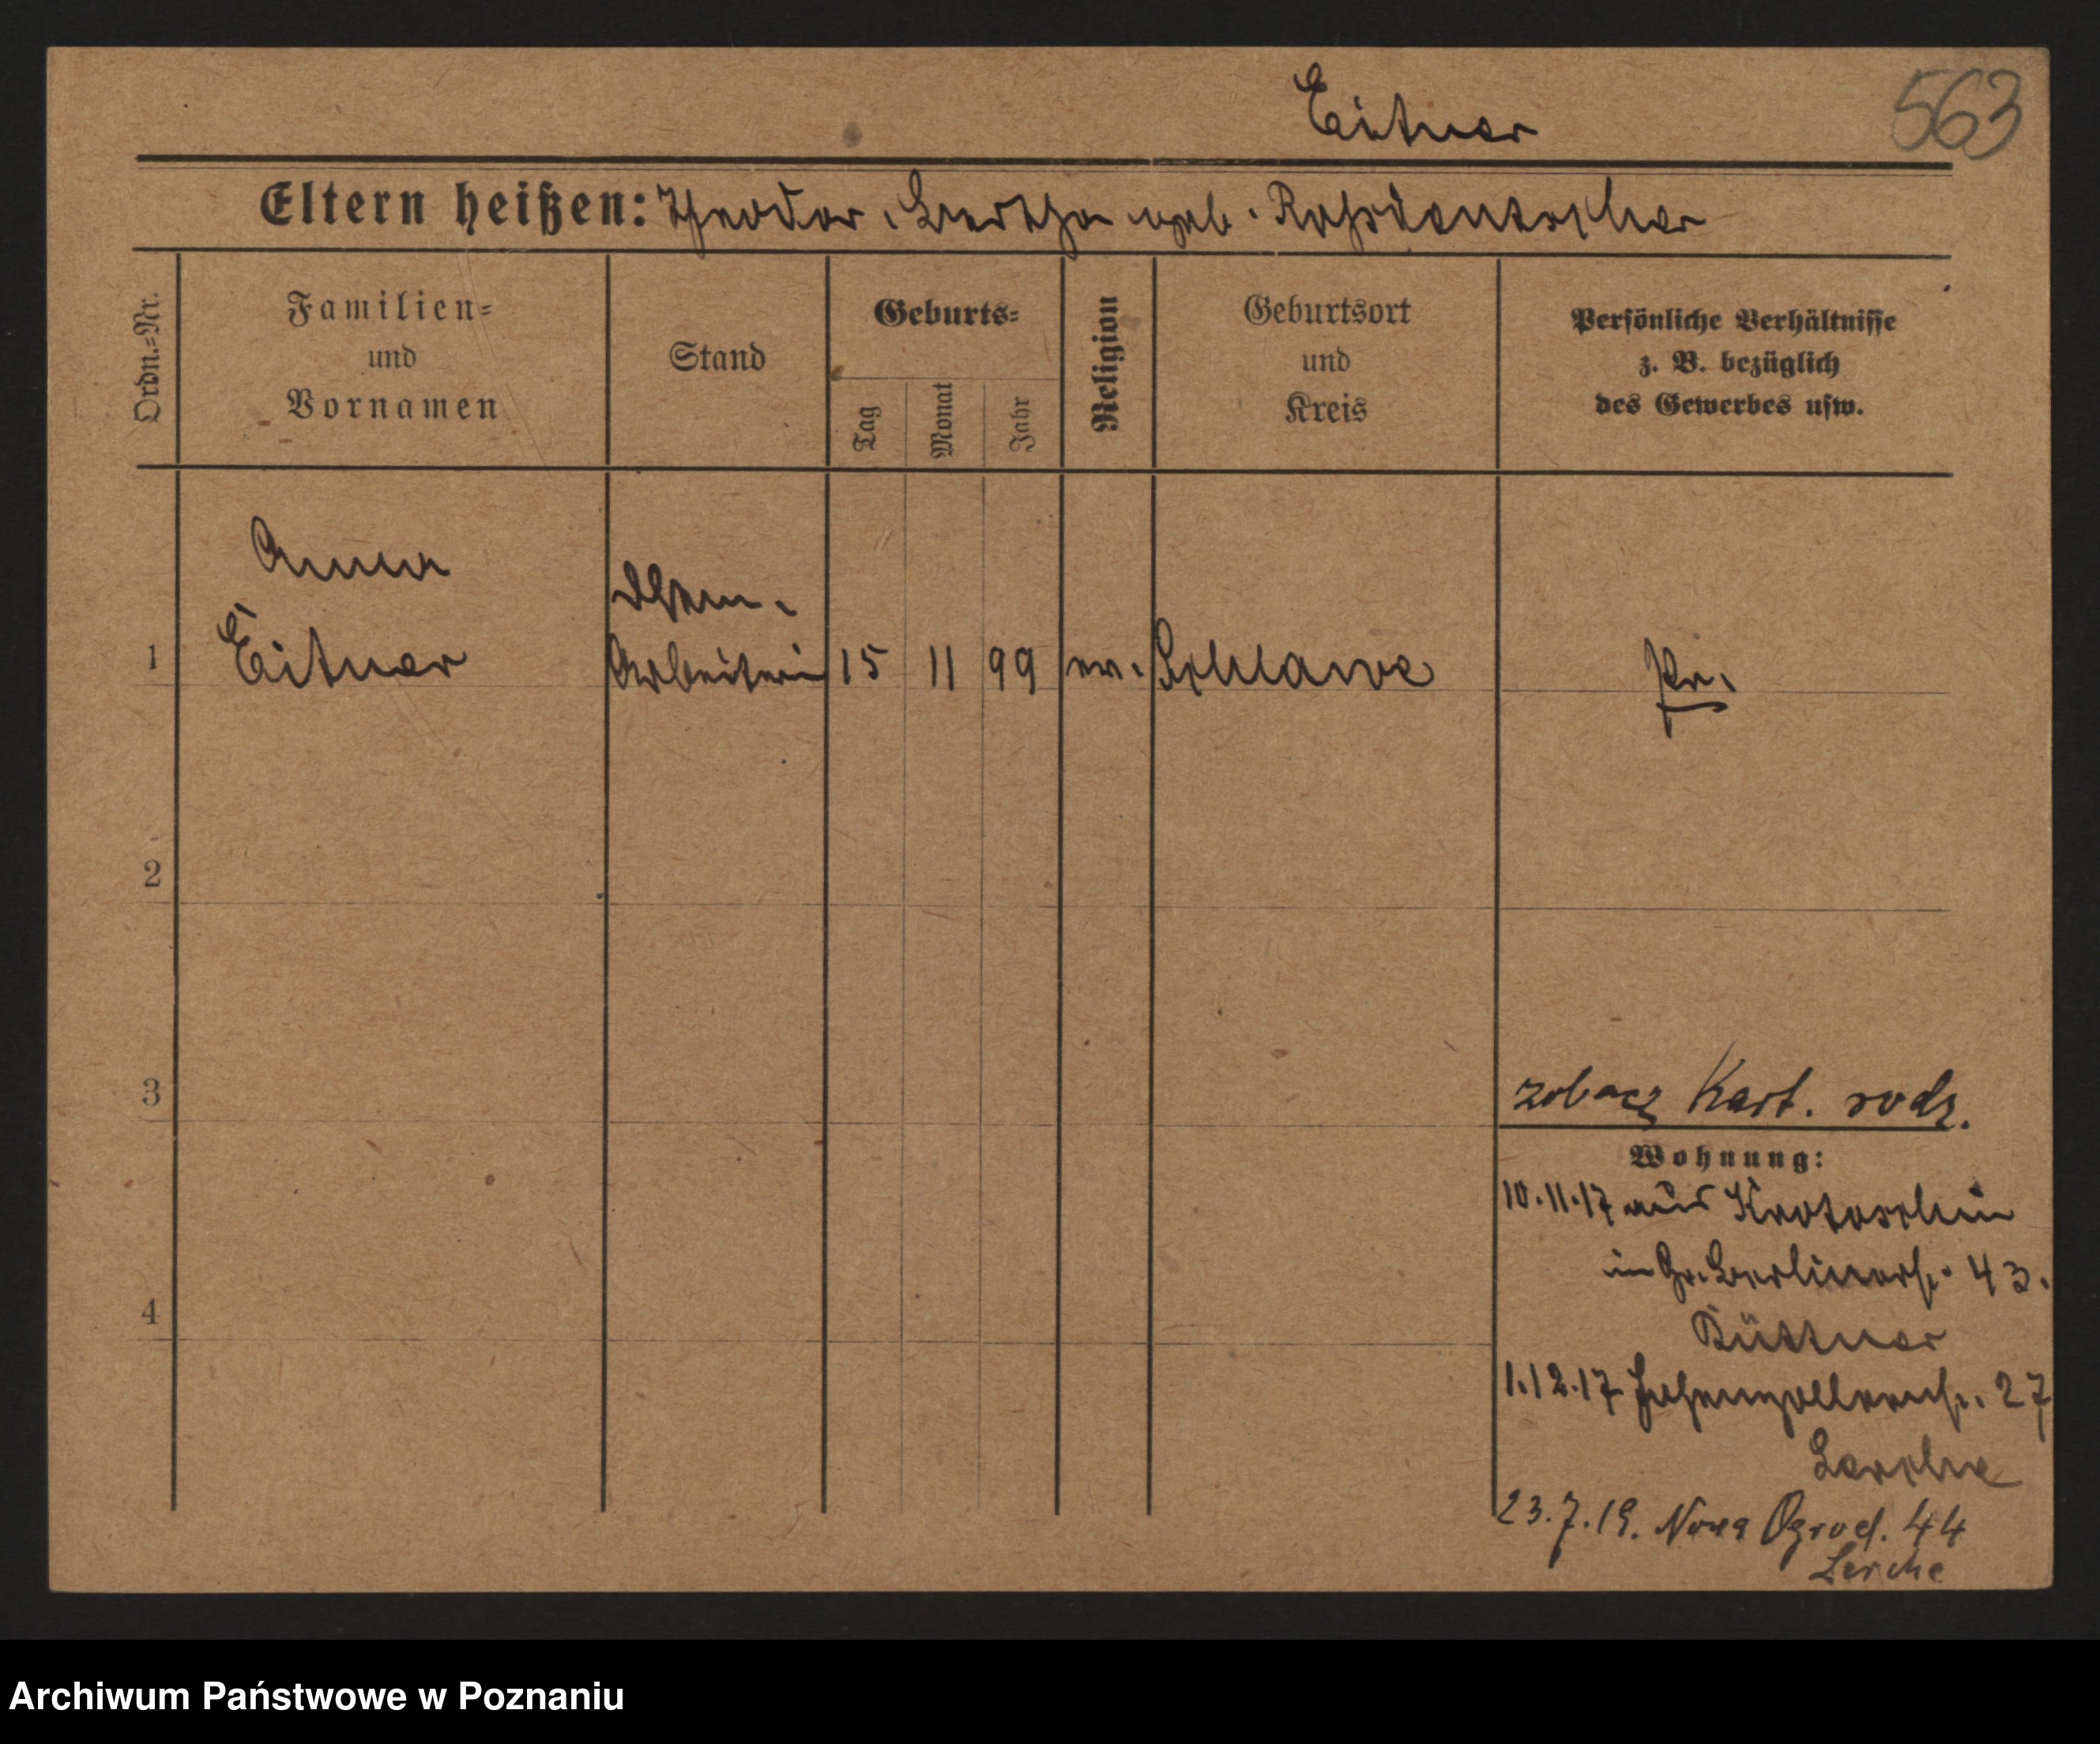 Eitner
563
Eltern heißen: Theodor, Bertha geb. Rohrdantscher
Ordn.-Nr.
Familien-
und
Vornamen
Stand
Geburts-
Tag
Monat
Jahr
Religion
Geburtsort
und
Kreis
Persönliche Verhältnisse
z. B. bezüglich
des Gewerbes usw.
Anna
Eitner
1
Arbeiterin
15 11 99 ev. Schlawe
Pr.
2
3
4
zobacz Kart. rodz.
Wohnung:
10.11.17 aus Krotoschin
in Gr. Berlinerstr. 43.
Büttner
1.12.17 Hohenzollernstr. 27
Lerche
23.7.19. Nowa Ogrod. 44
Lerche
Archiwum Państwowe w Poznaniu